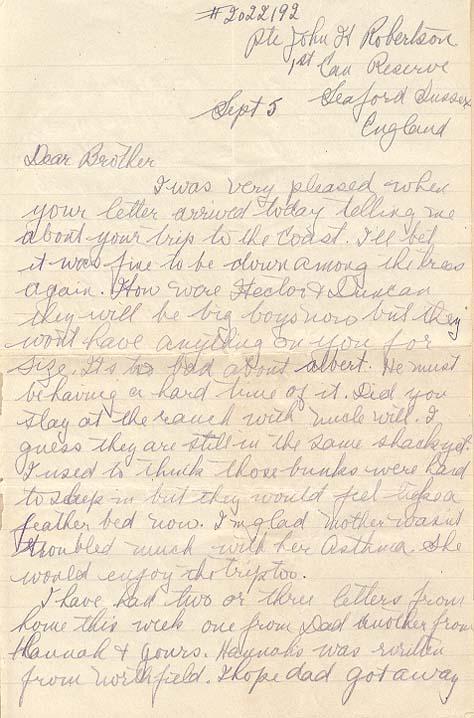 #2022192
Pte John H Robertson
1st Can Reserve
Seaford Sussex
Sept 5
England
Dear Brother
I was very pleased when
your letter arrived today telling me
about your trip to the Coast. I'll bet
it was fine to be down among the trees
again. How were Hector & Duncan
they will be big boys now but they
wont have anything on you for
size. Its to bad about albert. He must
be having a hard time of it. Did you
stay at the ranch with uncle Will. I
guess they are still in the same shack yet.
I used to think those bunks were hard
to sleep in but they would feel like a
feather bed now. I'm glad Mother wasn't
troubled much with her Asthma. She
would enjoy the trip too.
I have had two or three letters from
home this week one from Dad another from
Hannah & yours. Hannahs was written
from Northfield. I hope dad got away